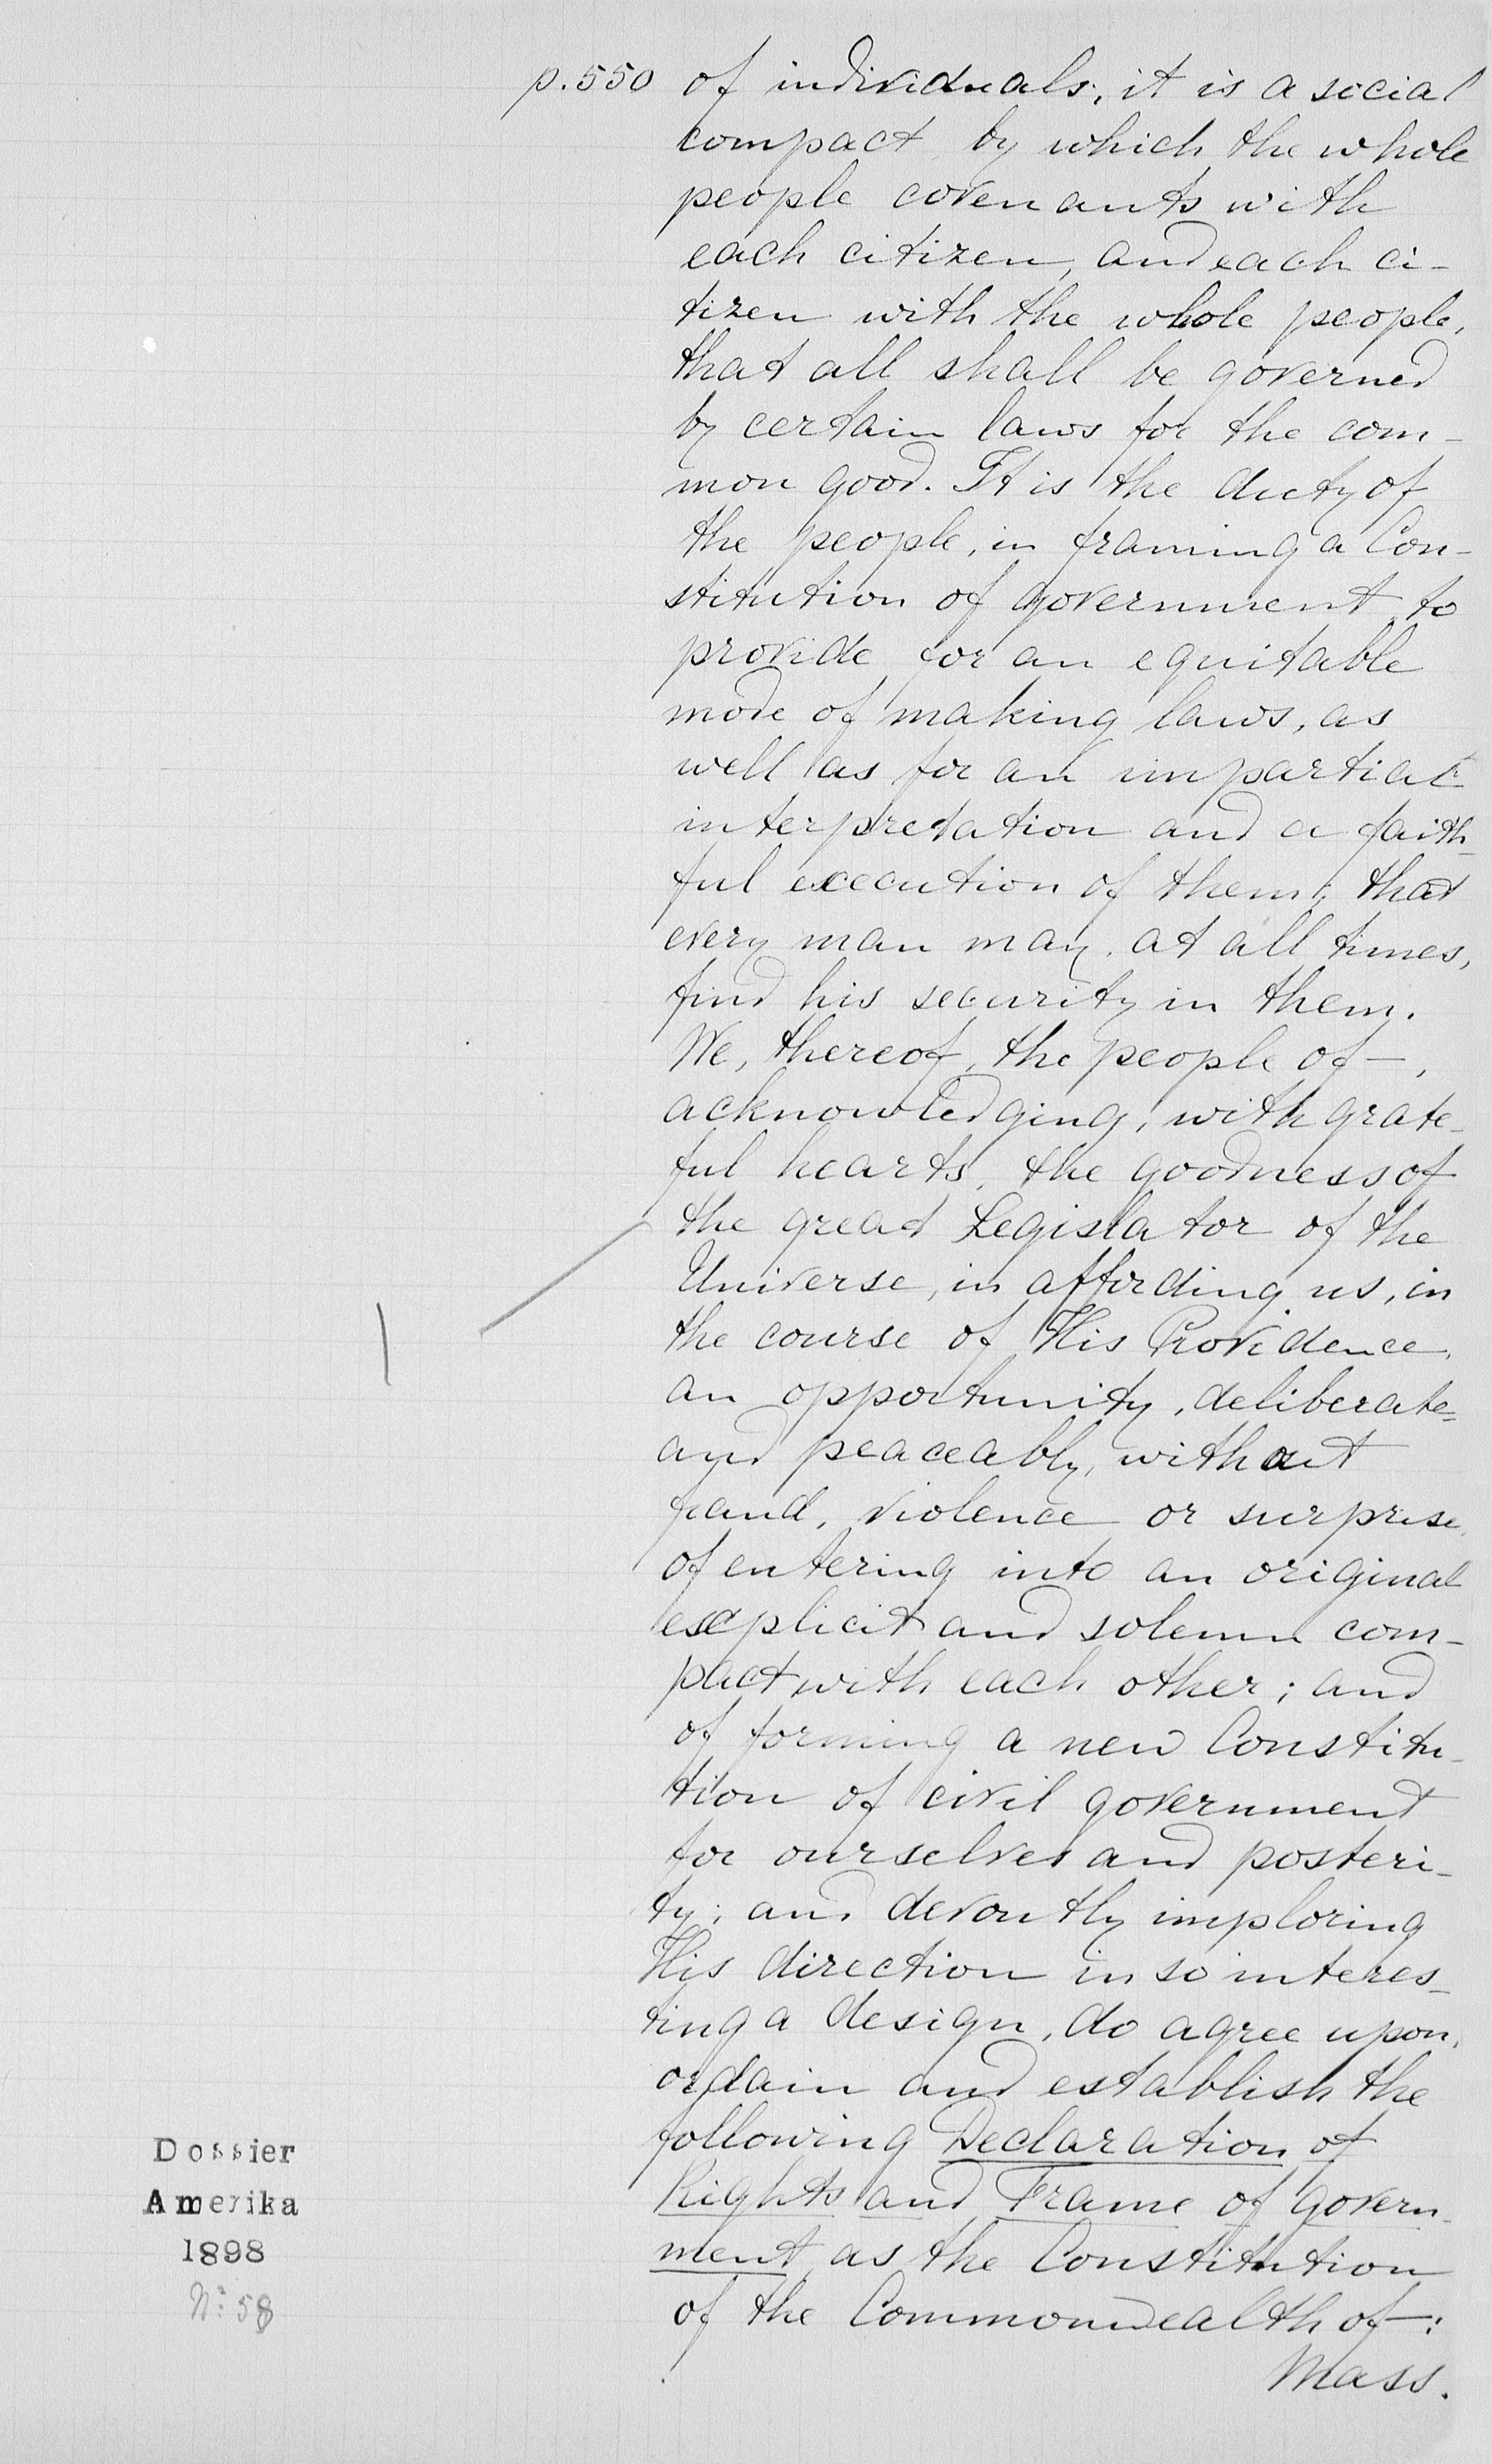 p. 550 of individuals; it is a social
compact, by which the whole
people covenants with
each citizen, and each ci-
tizen with the whole people,
that all shall be governed
by certain laws for the com-
mon good. It is the duty of
the people, in framing a Con-
stitution of government, to
provide for an equitable
mode of making laws, as
well as for an impartial
interpretation and a faith-
ful execution of them; that
every man may, at all times,
find his security in them.
We, thereof, the people of —,
acknowledging, with grate-
ful hearts, the goodness of
the great Legislator of the
Universe, in affording us, in
the course of His Providence,
an opportunity, deliberate=
and peaceably, without
fraud, violence or surprise,
of entering into an original
explicit and solemn com-
pact with each other; and
of forming a new Constitu-
tion of civil government
for ourselves and posteri-
ty; and devoutly imploring
His direction in so interes-
ting a design, do agree upon,
ordain and establish the
following Declaration of
Rights and Frame of govern-
ment as the Constitution
of the Commonwealth of —:
Mass.
Dossier
Amerika
1898
No: 58